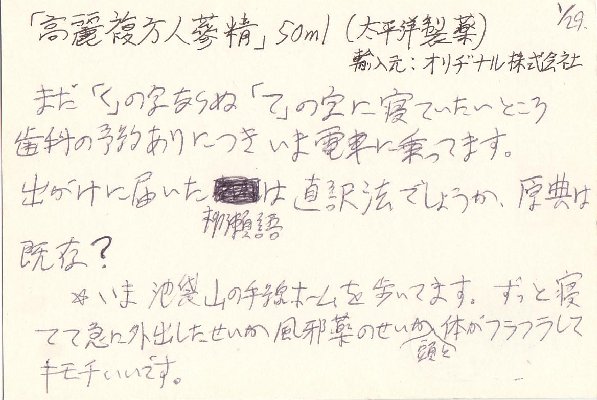 「高麗複方人蔘精」50ml（太平洋製薬）
1/29.
輸入元：オリヂナル株式会社
まだ「く」の字ならぬ「て」の字に寝ていたいところ
歯科の予約ありにつきいま電車に乗ってます。
出がけに届いたは直訳法でしょうか、原典は
瀬語
既存？
＊いま池袋山の手線ホームを歩いてます。ずっと寝
てて急に外出したせいか風邪薬のせいか体がフラフラして
頭と
キモチいいです。